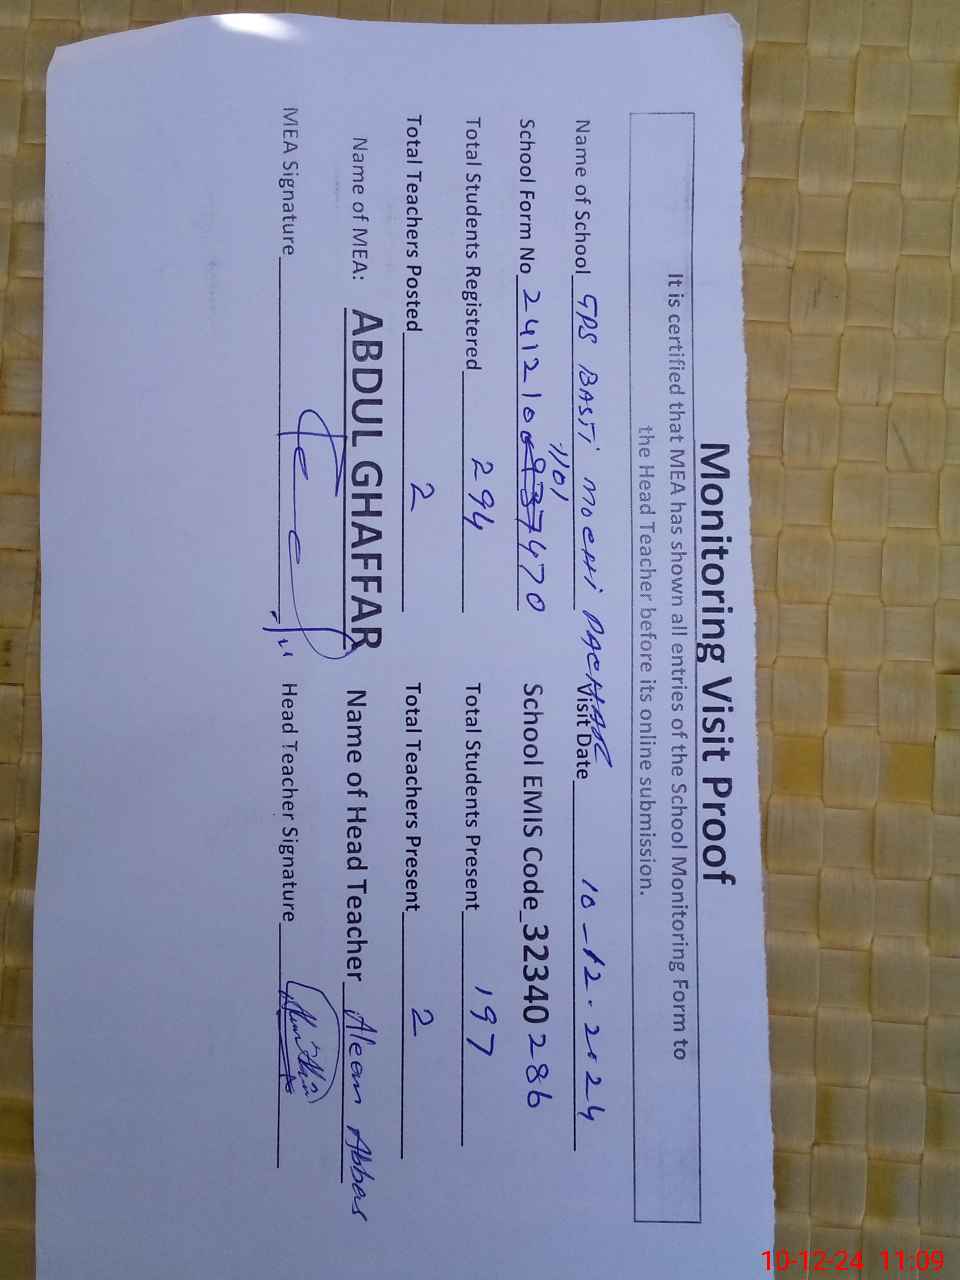 Monitoring Visit Proof
It is certified that MEA has shown all entries of the School Monitoring Form to
the Head Teacher before its online submission.
Name of School GPS BASTI MOCHI PACHAR Visit Date 10-12-2024
1101
School Form No 241210 7470 School EMIS Code 32340286
Total Students Registered 294 Total Students Present 197
Total Teachers Posted 2 Total Teachers Present 2
Name of MEA: ABDUL GHAFFAR Name of Head Teacher Aleem Abbas
MEA Signature Head Teacher Signature
10-12-24 11:09